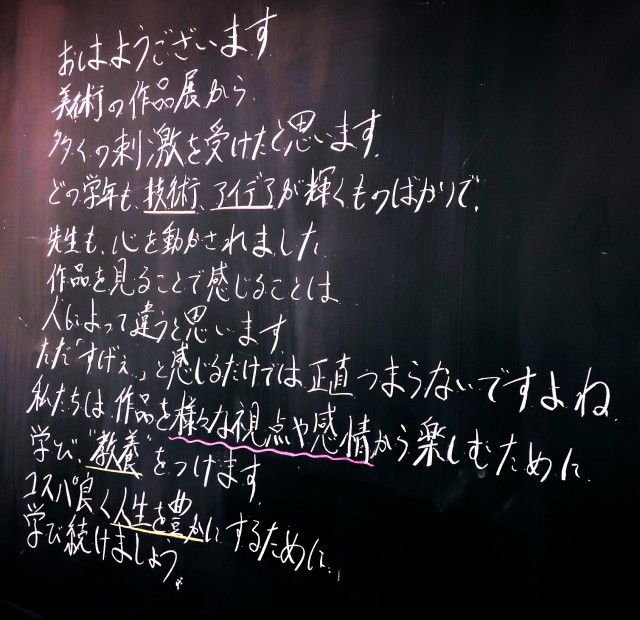 おはようございます
美術の作品展から
多くの刺激を受けたと思います。
どの学年も、技術、アイデアが輝くものばかりで、
先生も、心を動かされました
作品を見ることで感じることは
人によって違うと思います
ただ「すげぇ」と感じるだけでは正直つまらないですよね
私たちは、作品を様々な視点や感情から楽しむために
学び、"教養"をつけます
コスパ良く人生を豊かにするために、
学び続けましょう。